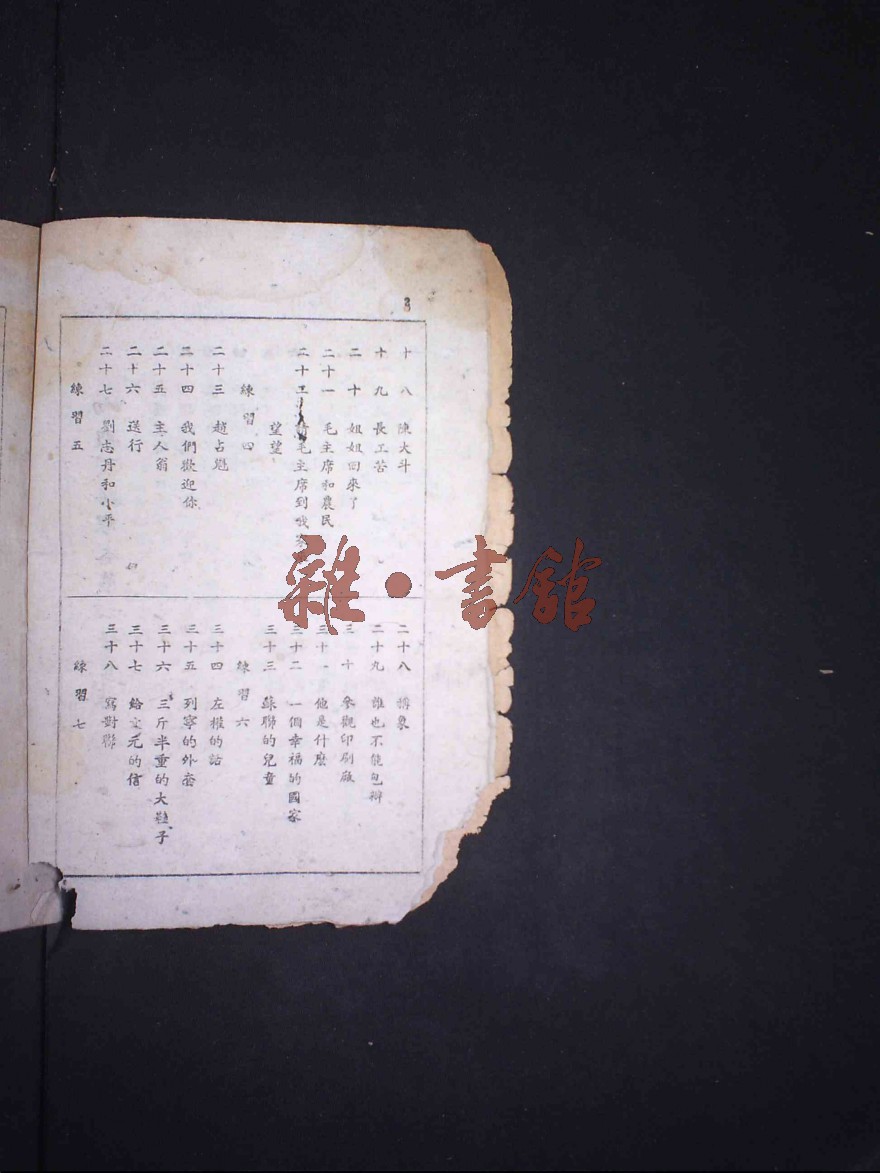 3
十八 陳大斗
十九 長工苦
二十 姐姐回來了
二十一 毛主席和農民
二十二 毛主席到我家
望望
練習四
二十三 趙占魁
二十四 我們歡迎你
二十五 主人翁
二十六 送行
二十七 劉志丹和小平
練習五
二十八 摸象
二十九 誰也不能包辦
三十 參觀印刷廠
三十一 他是什麼
三十二 一個幸福的國家
三十三 蘇聯的兒童
練習六
三十四 左權的話
三十五 列寧的外套
三十六 三斤半重的大鞋子
三十七 給 元的信
三十八 寫對聯
練習七
雜·書館